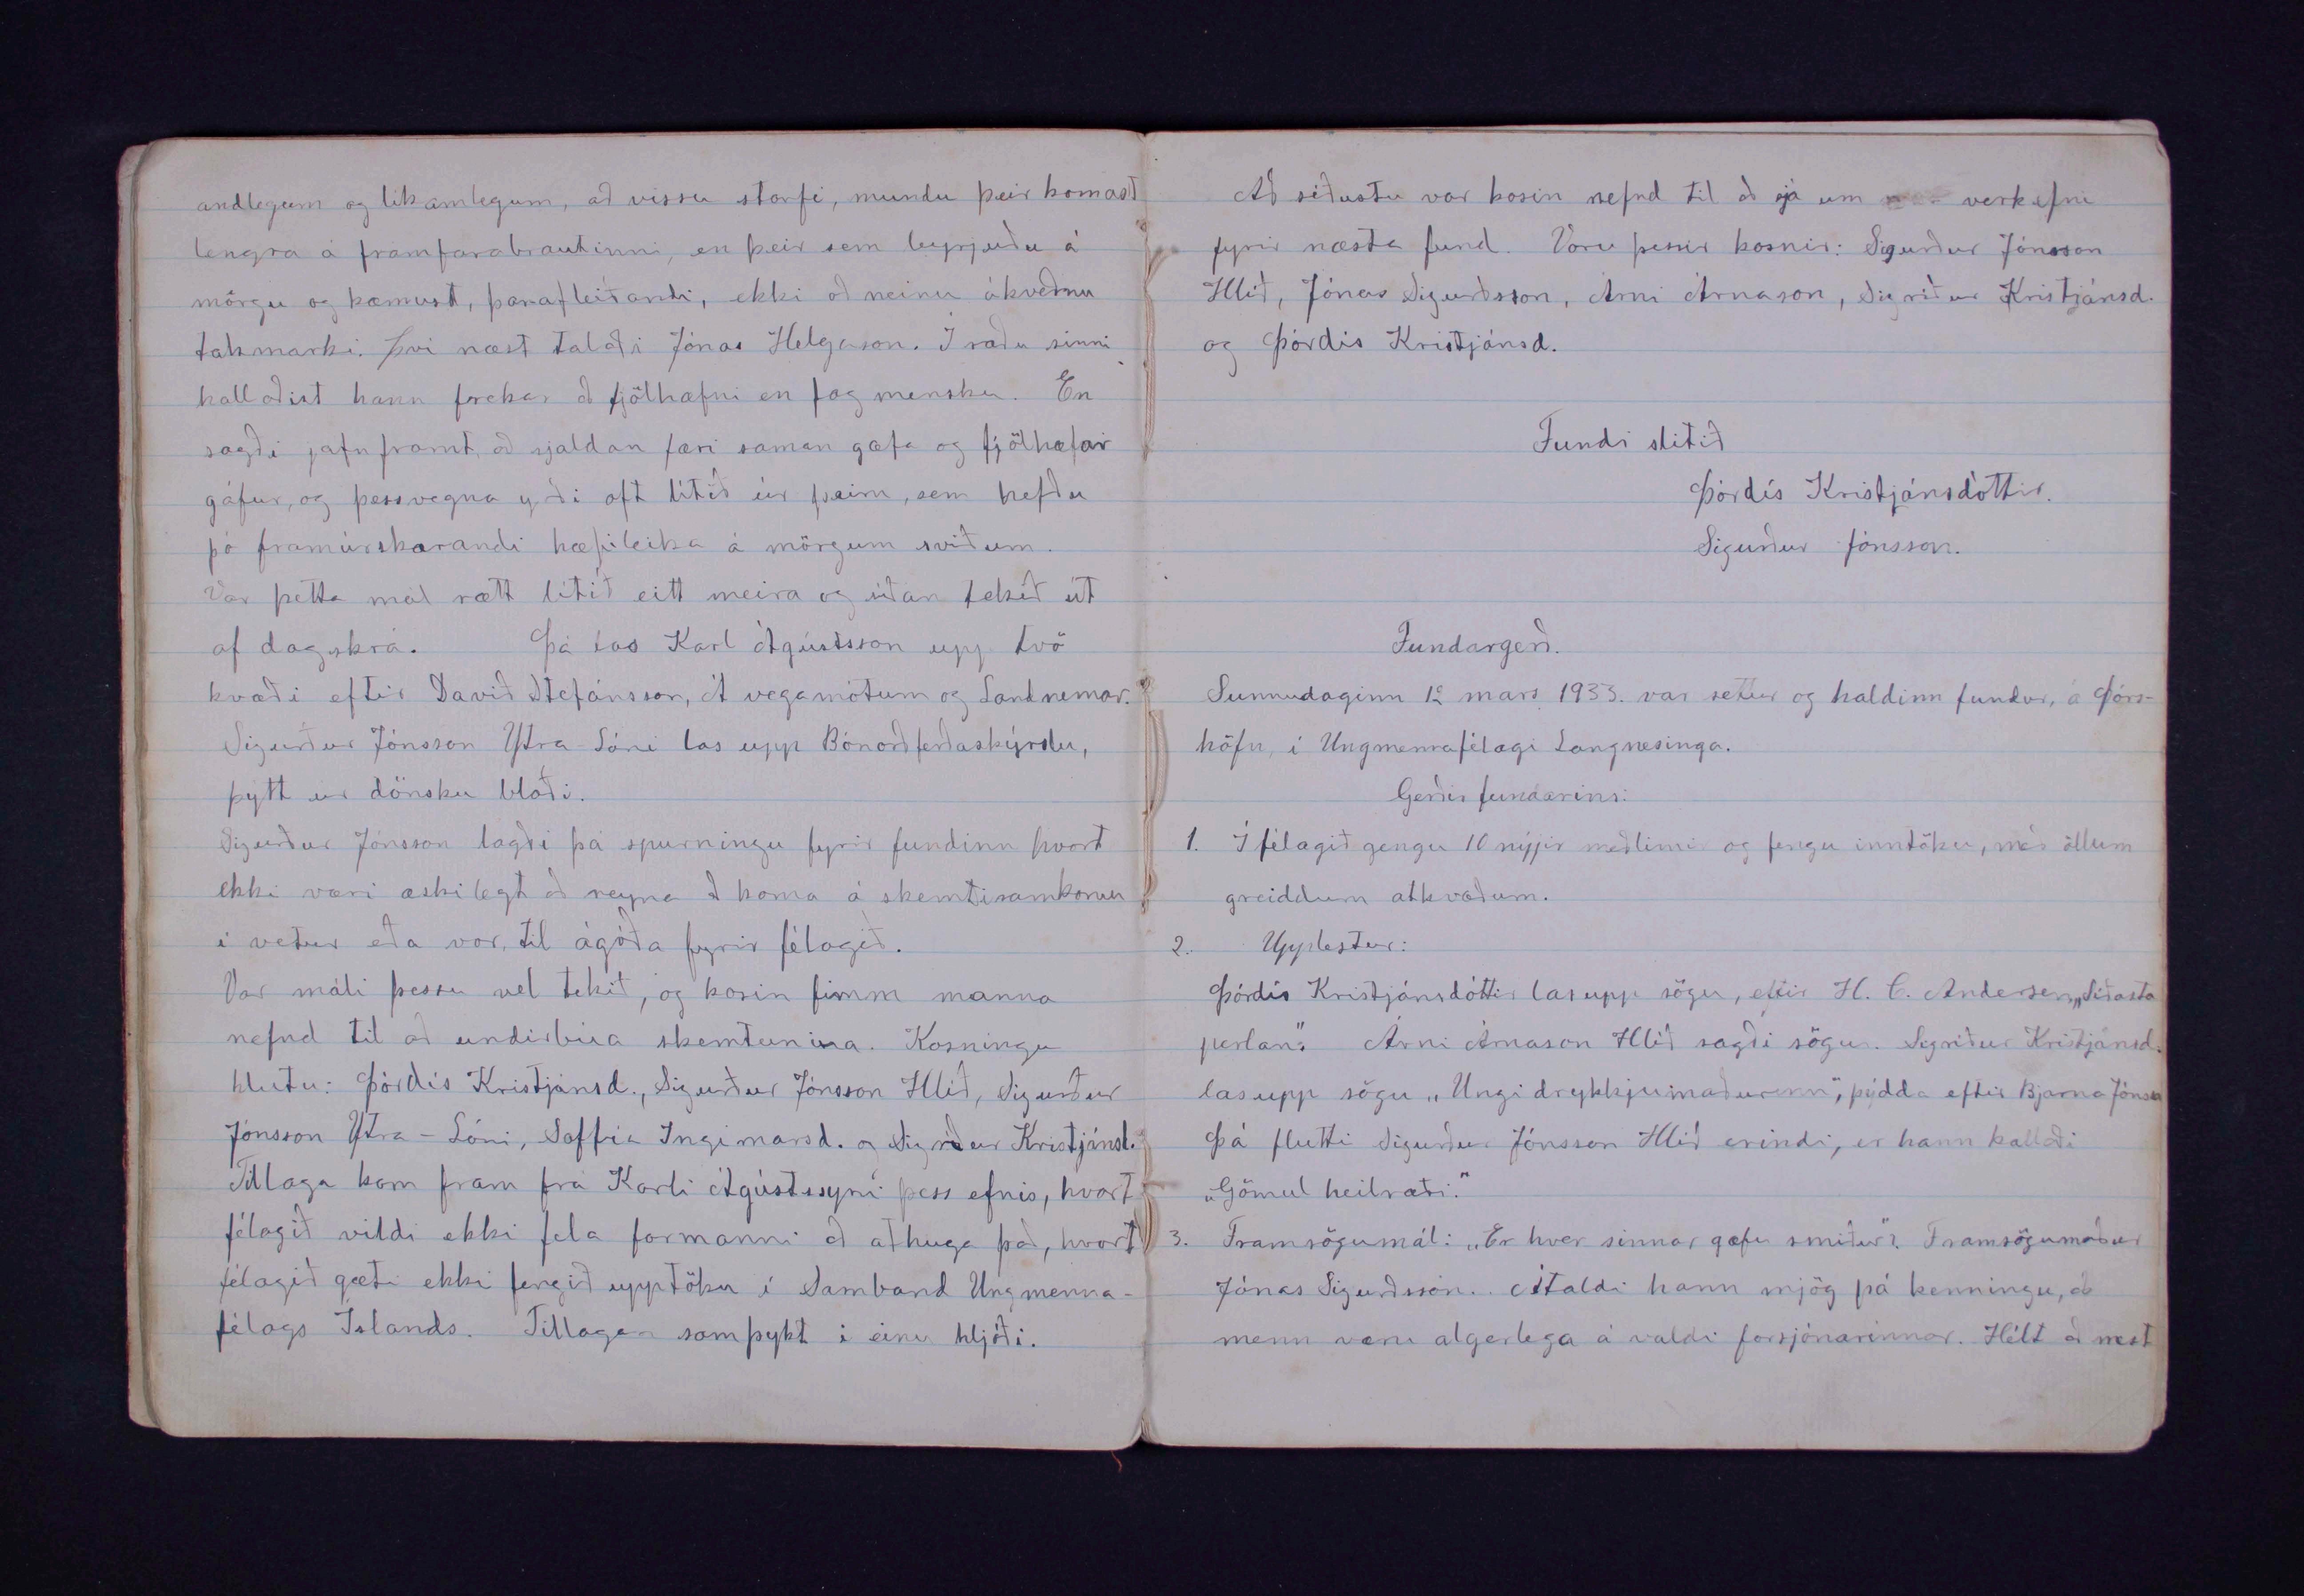 andlegum og líkamlegum, að vissu starfi, mundu þeir komast
lengra á framfarabrautinni, en þeir sem byrjuðu á
mörgu og kæmust, þarafleiðandi, ekki að neinu ákveðnu
takmarki. Því næst talaði Jónas Helgason. Í ræðu sinni
hallaðist hann frekar að fjölhæfni en fagmensku. En
sagði jafnframt, að sjaldan færi saman gæfa og fjölhæfar
gáfur, og þessvegna yrði oft lítið úr þeim, sem hefðu
þó framúrskarandi hæfileika á mörgum sviðum.
Var þetta mál rætt lítið eitt meira og síðan tekið út
af dagskrá. Þá las Karl Ágústsson upp tvö
kvæði eftir Davíð Stefánsson, Á vegamótum og Landnemar.
Sigurður Jónsson Ytra-Lóni las upp Bónorðferðaskýrslu,
þytt úr dönsku blaði.
Sigurður Jónsson lagði þá spurningu fyrir fundinn hvort
ekki væri æskilegt að reyna að koma á skemtisamkomu
í vetur eða vor, til ágóða fyrir félagið.
Var máli þessu vel tekið, og kosin fimm manna
nefnd til að undirbúa skemtunina. Kosningu
hlutu: Þórdís Kristjánsd., Sigurður Jónsson Hlíð, Sigurður
Jónsson Ytra-Lóni, Soffía Ingimarsd. og Sigríður Kristjánsd.
Tillaga kom fram frá Karli Ágústssyni þess efnis, hvort
félagið vildi ekki fela formanni að athuga það, hvort
félagið gæti ekki fengið upptöku í Samband Ungmenna-
félags Íslands. Tillagan samþykt í einu hljóði.
Að síðustu var kosin nefnd til að sjá um verkefni
fyrir næsta fund. Voru þessir kosnir: Sigurður Jónsson
Hlíð, Jónas Sigurðsson, Árni Árnason, Sigríður Kristjánsd.
og Þórdís Kristjánsd.
Fundi slitið
Þórdís Kristjánsdóttir.
Sigurður Jónsson.
Fundargerð.
Sunnudaginn 12 mars 1933. var settur og haldinn fundur, á Þórs-
höfn, í Ungmennafélagi Langnesinga.
Gerðir fundarins:
1. Í félagið gengu 10 nýjir meðlimir og fengu inntöku, með öllum
greiddum atkvæðum.
2. Upplestur:
Þórdís Kristjánsdóttir las upp sögu, eftir H. C. Andersen, „Síðasta
perlan". Árni Árnason Hlíð sagði sögur. Sigríður Kristjánsd.
las upp sögu „Ungi drykkjumaðurinn", þýdda eftir Bjarna Jónsson
Þá flutti Sigurður Jónsson Hlíð erindi, er hann kallaði
„Gömul heilræði."
3. Framsögumál: „Er hver sinnar gæfu smiður"? Framsögumaður
Jónas Sigurðsson. Átaldi hann mjög þá kenningu, að
menn væru algerlega á valdi forsjónarinnar. Hélt að mest